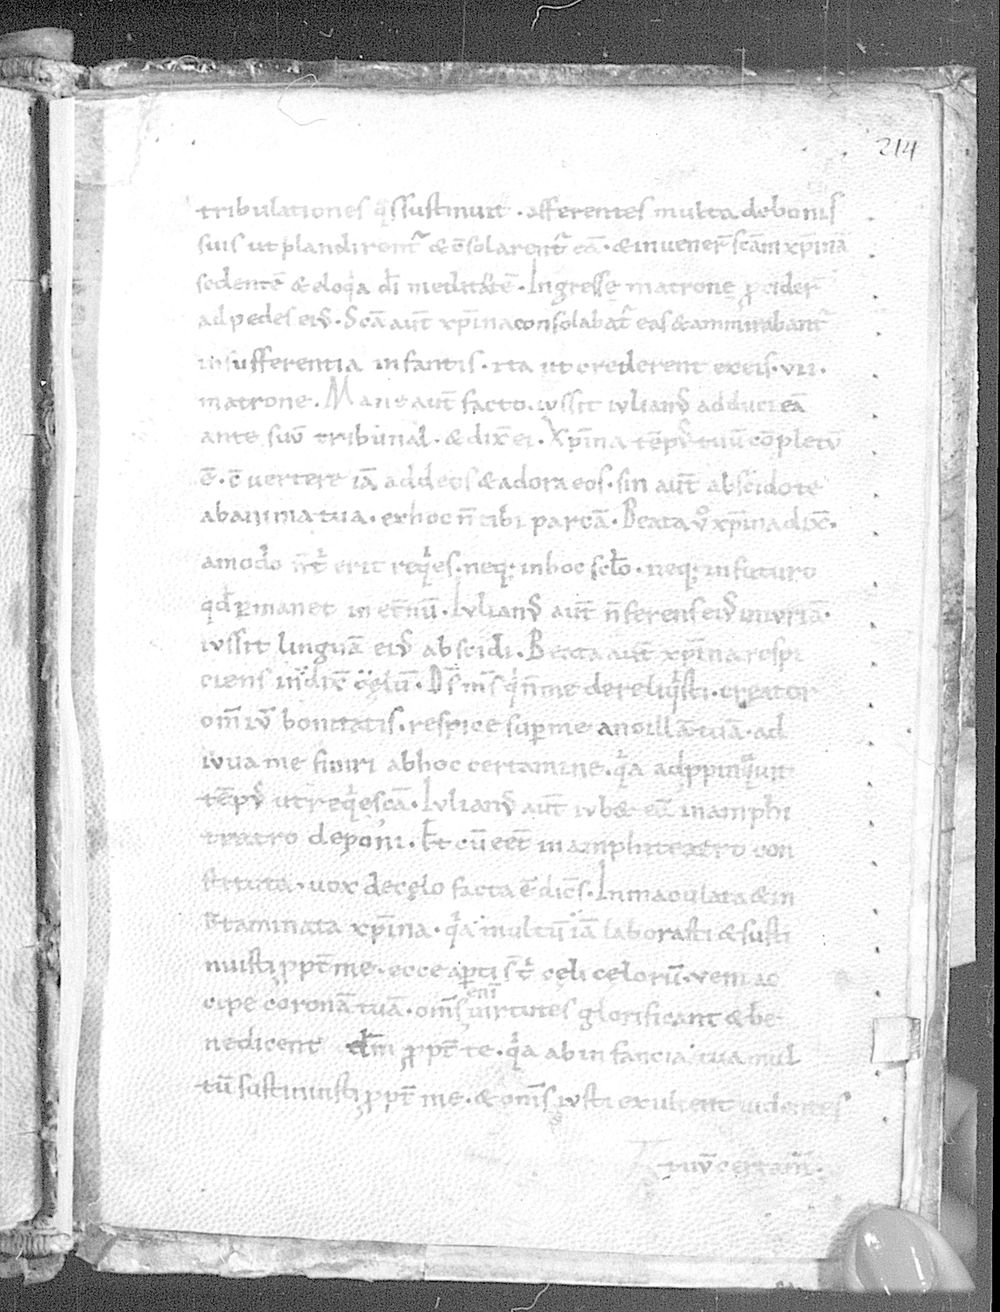 214
tribulationes q̄ sustinuit · afferentes multa de bonis
suis ut plandirent᷑ & c̄solarent᷑ eā · & inuener̄ scām xp̄inā
sedentē & eloq̇a dī meditātē · Ingresse matrone p̄cider̄
ad pedes eiꝰ · Scā aut̄ xp̄ina consolabat᷑ eas & ammirabant᷑
in sufferentia infantis · ita ut crederent ex eis · vii ·
matrone · Mane aut̄ facto · iussit iulianꝰ adduci eā
ante suū tribunal · & dix̄ ei · Xp̄ina tēpꝰ tuū cōpletū
ē · c̄uertere iā ad deos & adora eos · sin aut̄ abscido te
ab anima tua · ex hoc n̄ tibi parcā · Beata ů xp̄ina dix̄ ·
amodo n̄ t᷑ erit req̇es · neq; in hoc sclō · neq; in futuro
qđ p̱manet in et̄nū · Iulianꝰ aut̄ n̄ ferens eiꝰ iniuriā ·
iussit linguā eiꝰ abscidi · Beata aut̄ xp̄ina respi
ciens in celū dix̄ · Dn̄s m̄s q̇ n̄ me dereliq̇sti · creator
om̄iū bonitatis · respice sup̱ me ancillā tuā · ad
iuua me finiri ab hoc certamine · q̇a adp̱pinq̇uit
tēpꝰ ut req̇escā · Iulianꝰ aut̄ iub& eā in amphi
teatro deponi · Et cū eēt in amphiteatro con
stituta · uox de celo facta ē dicēs · Inmaculata & in
c̄taminata xp̄ina · q̇a multū iā laborasti & susti
nuisti p̱pt̄ me · ecce ap̱ti s̄t celi celorū · veni ac
cipe coronā tuā · om̄s eni uirtutes glorificant & be
nedicent dm̄ p̱pt̄ te · q̇a ab infancia tua mul
tū sustinuisti p̱pt̄ me · & om̄s iusti exultent uidentes
tuū certam̄ ·